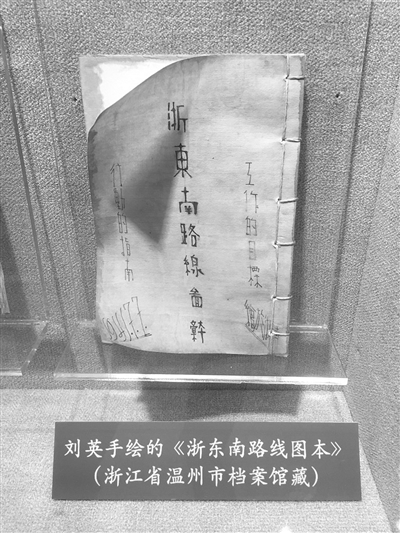 工作的目標
浙東南路線啚
行動的指南
刘英手绘的《浙东南路线图本》
（浙江省温州市档案馆藏）